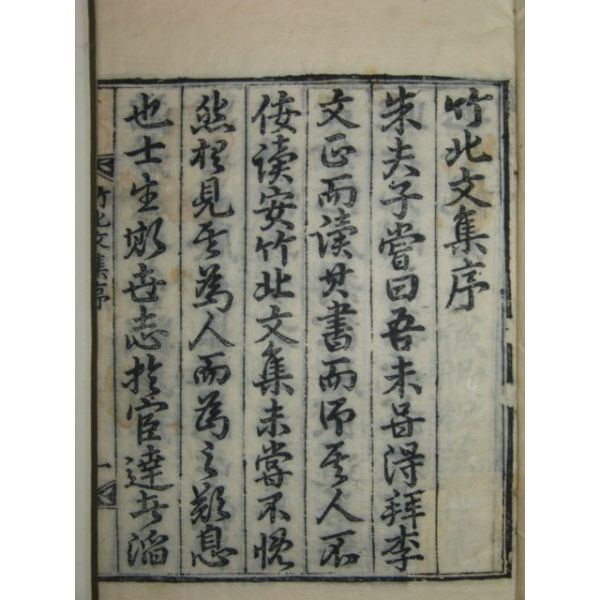 竹北文集序
朱夫子嘗曰吾未曾得拜李
文正而讀其書而師其人不
佞讀安竹北文集未嘗不慨
然想見其為人而為之歎息
也士生斯世志於宦達者滔
竹北文集序
一